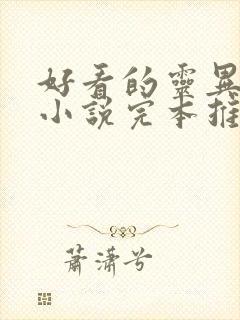 好看的靈異
小說完本推
蕭瀟兮